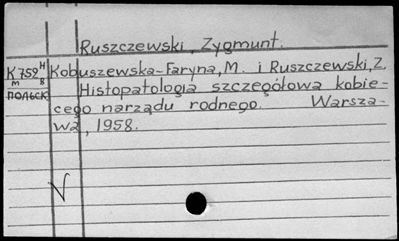 Ruszczewski, Zygmunt.
К 759 H/8 Kobuszewska-Faryna, M. i Ruszczewski, Z.
м
польск Histopatologia szczegółowa kobie-
cego narządu rodnego. Warsza-
wa, 1958.